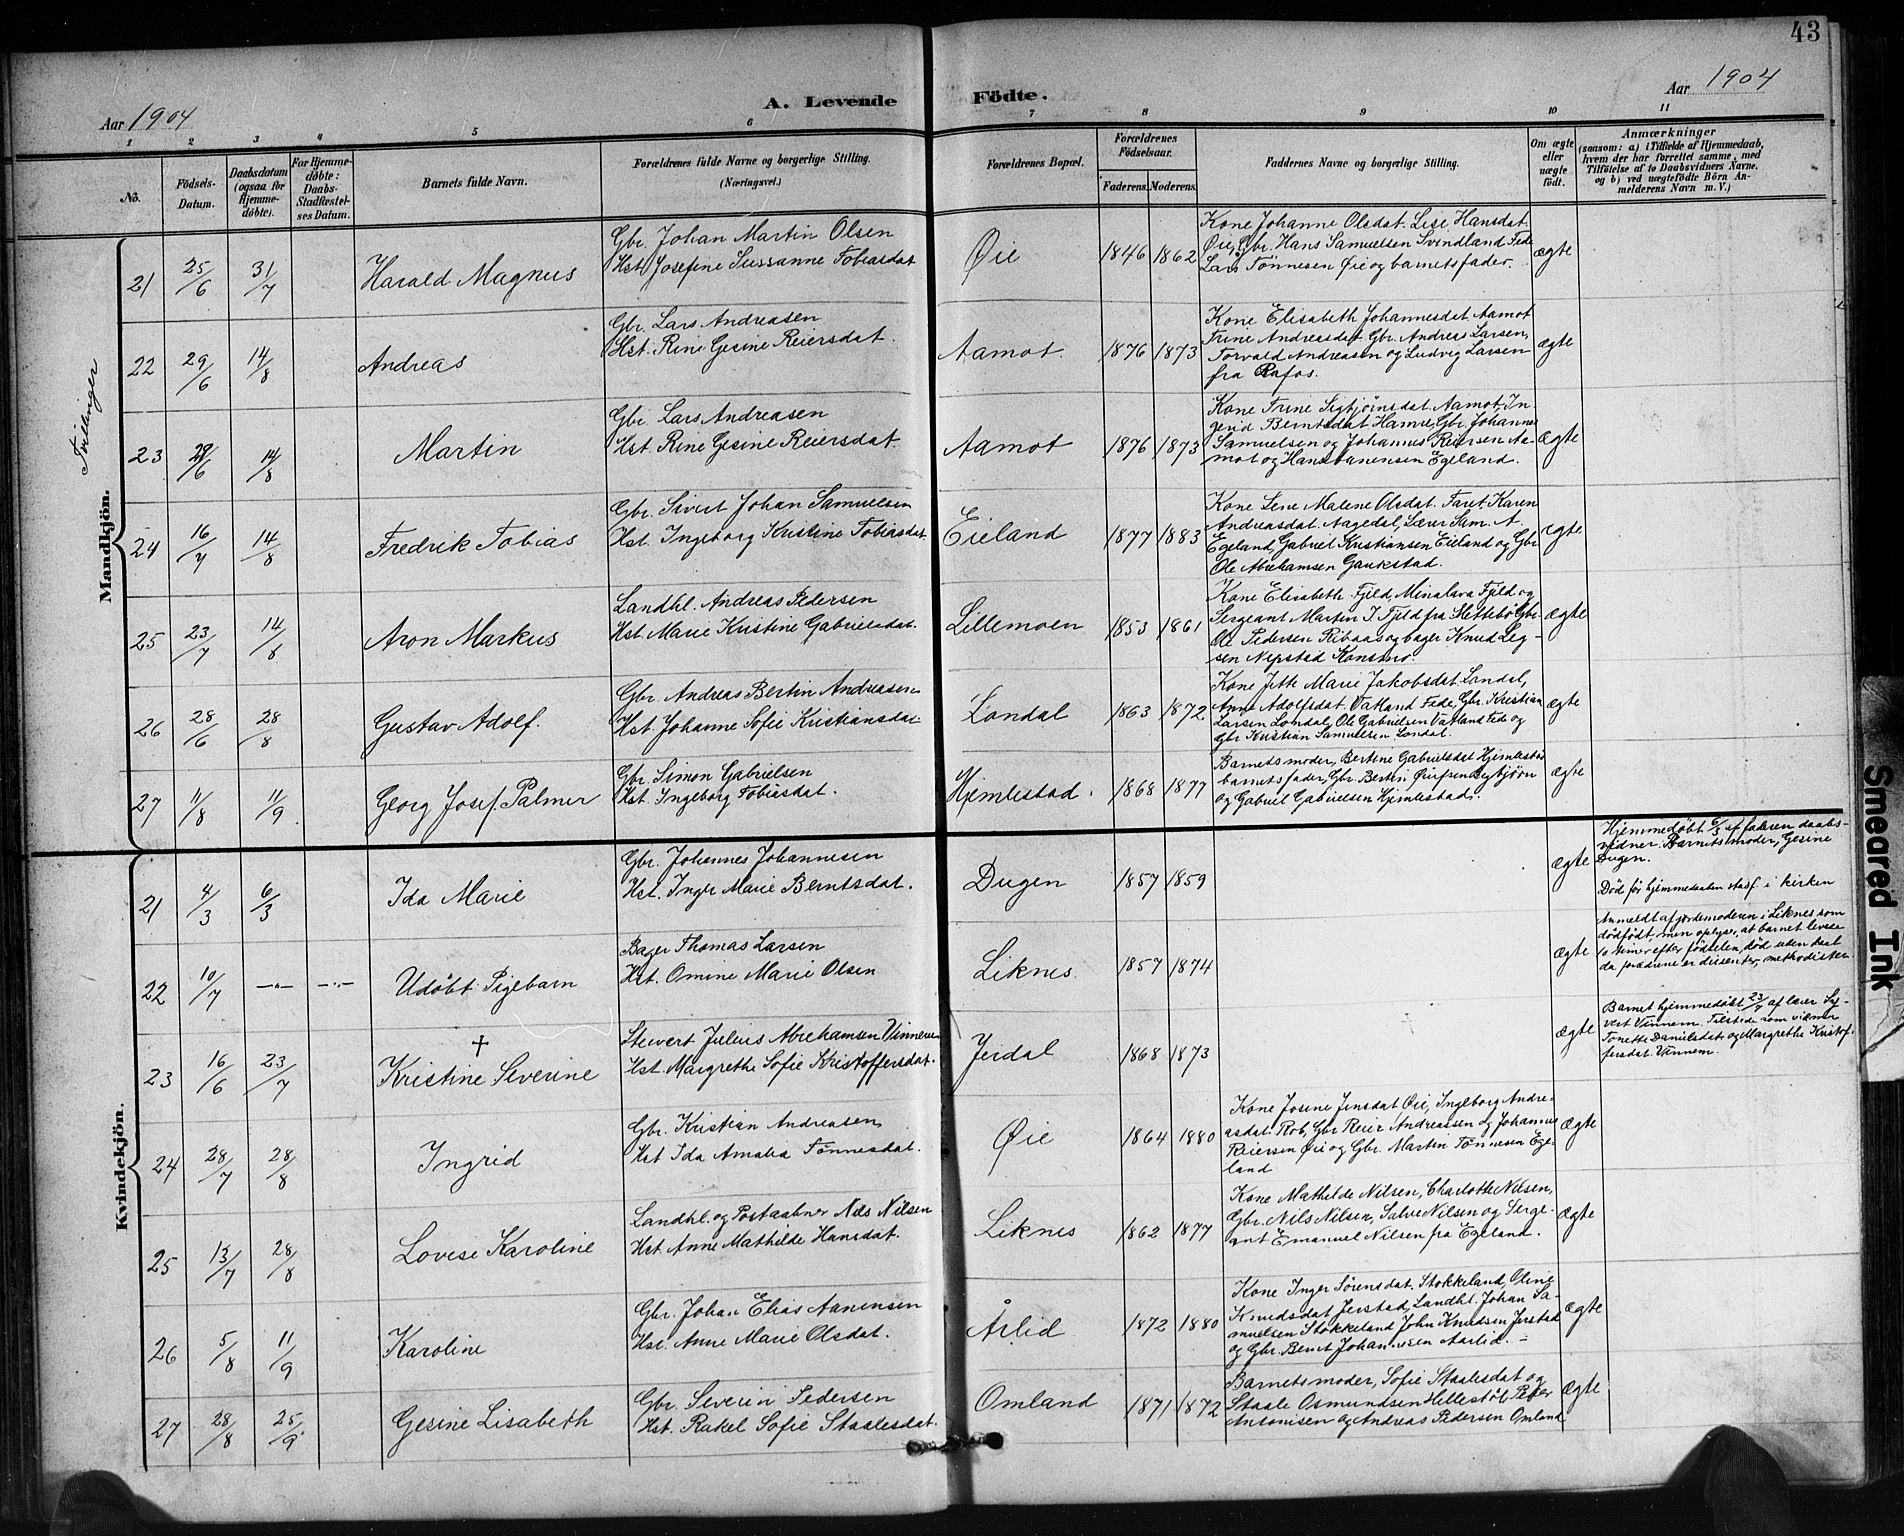 43
Aar 1904
A. Levende
Födte.
Aar 1904
1 2 3 4 5 6 7 8 9 10 11
No.
Födsels-
Datum.
Daabsdatum
(ogsaa for
Hjemme-
döbte).
For Hjemme-
döbte:
Daabs-
Stadfæstel-
ses Datum.
Barnets fulde Navn.
Forældrenes fulde Navne og borgerlige Stilling.
(Næringsvei.)
Forældrenes Bopæl.
Forældrenes
Födselsaar.
Faderens. Moderens.
Faddernes Navne og borgerlige Stilling.
Om ægte
eller
uægte
født.
Anmærkninger
(saasom: a) i Tilfælde af Hjemmedaab,
hvem der har forrettet samme, med
Tilföielse af to Daabsvidners Navne,
og b) ved uægtefödte Börn An-
melderens Navn m. V.)
Mandkjön.
Tvillinger
21 25/6 31/7 Harald Magnus
Gbr. Johan Martin Olsen
Hst. Josefine Sussanne Tobiasdat
Øie 1846 1862
Kone Johanne Olsdat. Lise Hansdat.
Øie, Gbr. Hans Samuelsen Svindland Fede
Lars Tønnesen Øie og barnets fader.
ægte
22 29/6 14/8 Andreas
Gbr. Lars Andreasen
Hst. Rine Gesine Reiersdat.
Aamot 1876 1873
Kone Elisabeth Johannesdat Aamot
Trine Andreasdat Gbr. Andreas Larsen,
Torvald Andreasen og Ludvig Larsen
fra Rafos.
ægte
23 29/6 14/8 Martin
Gbr. Lars Andreasen
Hst. Rine Gesine Reiersdat.
Aamot 1876 1873
Kone Trine Sigbjørnsdat. Aamot, In-
gerid Berntsdat Hamre, Gbr. Johannes
Samuelsen og Johannes Reiersen Aa-
mot og Hans Aanensen Egeland.
ægte
24 16/7 14/8 Fredrik Tobias
Gbr. Sivert Johan Samuelsen
Hst. Ingeborg Kristine Tobiasdat
Eieland 1877 1883
Kone Lene Malene Olsdat. Faret, Karen
Andreasdat. Aagedal, Lærer Sam. A.
Egeland, Gabriel Kristiansen Eieland og Gbr
Ole Abrahamsen Gaukstad.
ægte
25 23/7 14/8 Aron Markus
Landhl. Andreas Pedersen
Hst. Marie Kristine Gabrielsdat.
Lillemoen 1853 1861
Kone Elisabeth Fjeld, Fjeld og
Sergeant Martin T. Fjeld fra Slettebø Gbr.
Ole Pedersen Ribaas og bager Knud
sen Nepstad Konsmo.
ægte
26 28/6 28/8 Gustav Adolf.
Gbr. Andreas Bertin Andreasen
Hst. Johanne Sofie Kristiansdat
Londal 1863 1872
Kone Marie Jakobsdat Londal,
Anne Adolfsdat. Vatland Fede, Gbr. Kristian
Larsen Londal, Ole Gabrielsen Vatland Fede og
Gbr Kristian Samuelsen Londal.
ægte
27 11/8 11/9 Georg Josef Palmer
Gbr. Simon Gabrielsen
Hst. Ingeborg Tobiasdat.
Hjemlestad. 1868 1877
Barnets moder, Bertine Gabrielsdat Hjemlestad
barnets fader, Gbr. Bertin Bybjørn
og Gabriel Gabrielsen Hjemlestad.
ægte
Kvindekjön.
21 4/3 6/3 Ida Marie
Gbr. Johannes Johannesen
Hst. Inger Marie Berntsdat.
Dugen 1857 1859
ægte
Hjemmedøbt 6/3 af faderen daabs-
vidner. Barnets moder, Gesine
Dugen.
Død før hjemmedaaben stadf. i kirken
22 10/7 —"— —"— Udøbt Pigebarn
Bager Thomas Larsen
Hst. Omine Marie Olsen
Liknes. 1857 1874
ægte
Anmeldt af jordemoderen i Liknes som
dødfødt, men oplyser, at barnet levede
10 timer efter fødselen, død uden daab
da forældrene er dissenter, methodister
23 16/6 23/7 † Kristine Severine
Julius Abrahamsen Vinnem
Hst. Margrethe Sofie Kristoffersdat.
Jeidal 1868 1873
ægte
Barnet hjemmedøbt 23/7 af lærer Sy-
vert Vinnem. Tilstede som vidner
Tonette Danielsdat og Margrethe Kristof-
fersdat. Vinnem.
24 28/7 28/8 Ingrid
Gbr. Kristian Andreasen
Hst Ida Amalia Tønnesdat.
Øie 1864 1880
Kone Josine Jensdat Øie, Ingeborg Andre-
asdat. Rob, Gbr Reier Andreassen og Johannes
Reiersen Øie og Gbr. Martin Tønnesen Ege-
land.
ægte
25 13/7 28/8 Lovise Karoline
Landhl. og Postaabner Nils Nilsen
Hst. Anne Mathilde Hansdat.
Liknes 1862 1877
Kone Mathilde Nilsen, Charlotte Nilsen,
Gbr. Nils Nilsen, Salve Nilsen og Serge-
ant Emanuel Nilsen fra Egeland.
ægte
26 5/8 11/9 Karoline
Gbr. Johan Elias Aanensen
Hst. Anne Marie Olsdat.
Årlid 1872 1880
Kone Inger Sørensdat. Stokkeland, Oline
Knudsdat Jerstad, Landhl. Johan Sa-
muelsen Stokkeland John Knudsen Jerstad
og Gbr. Bernt Johannesen Aarlid.
ægte
27 28/8 25/9 Gesine Lisabeth
Gbr. Severin Pedersen
Hst. Rakel Sofie Staalesdat.
Omland 1871 1872
Barnets moder, Sofie Staalesdat og
Staale Osmundsen Hellestøl, Peder
Antonisen og Andreas Pedersen Omland
ægte
Smeared Ink